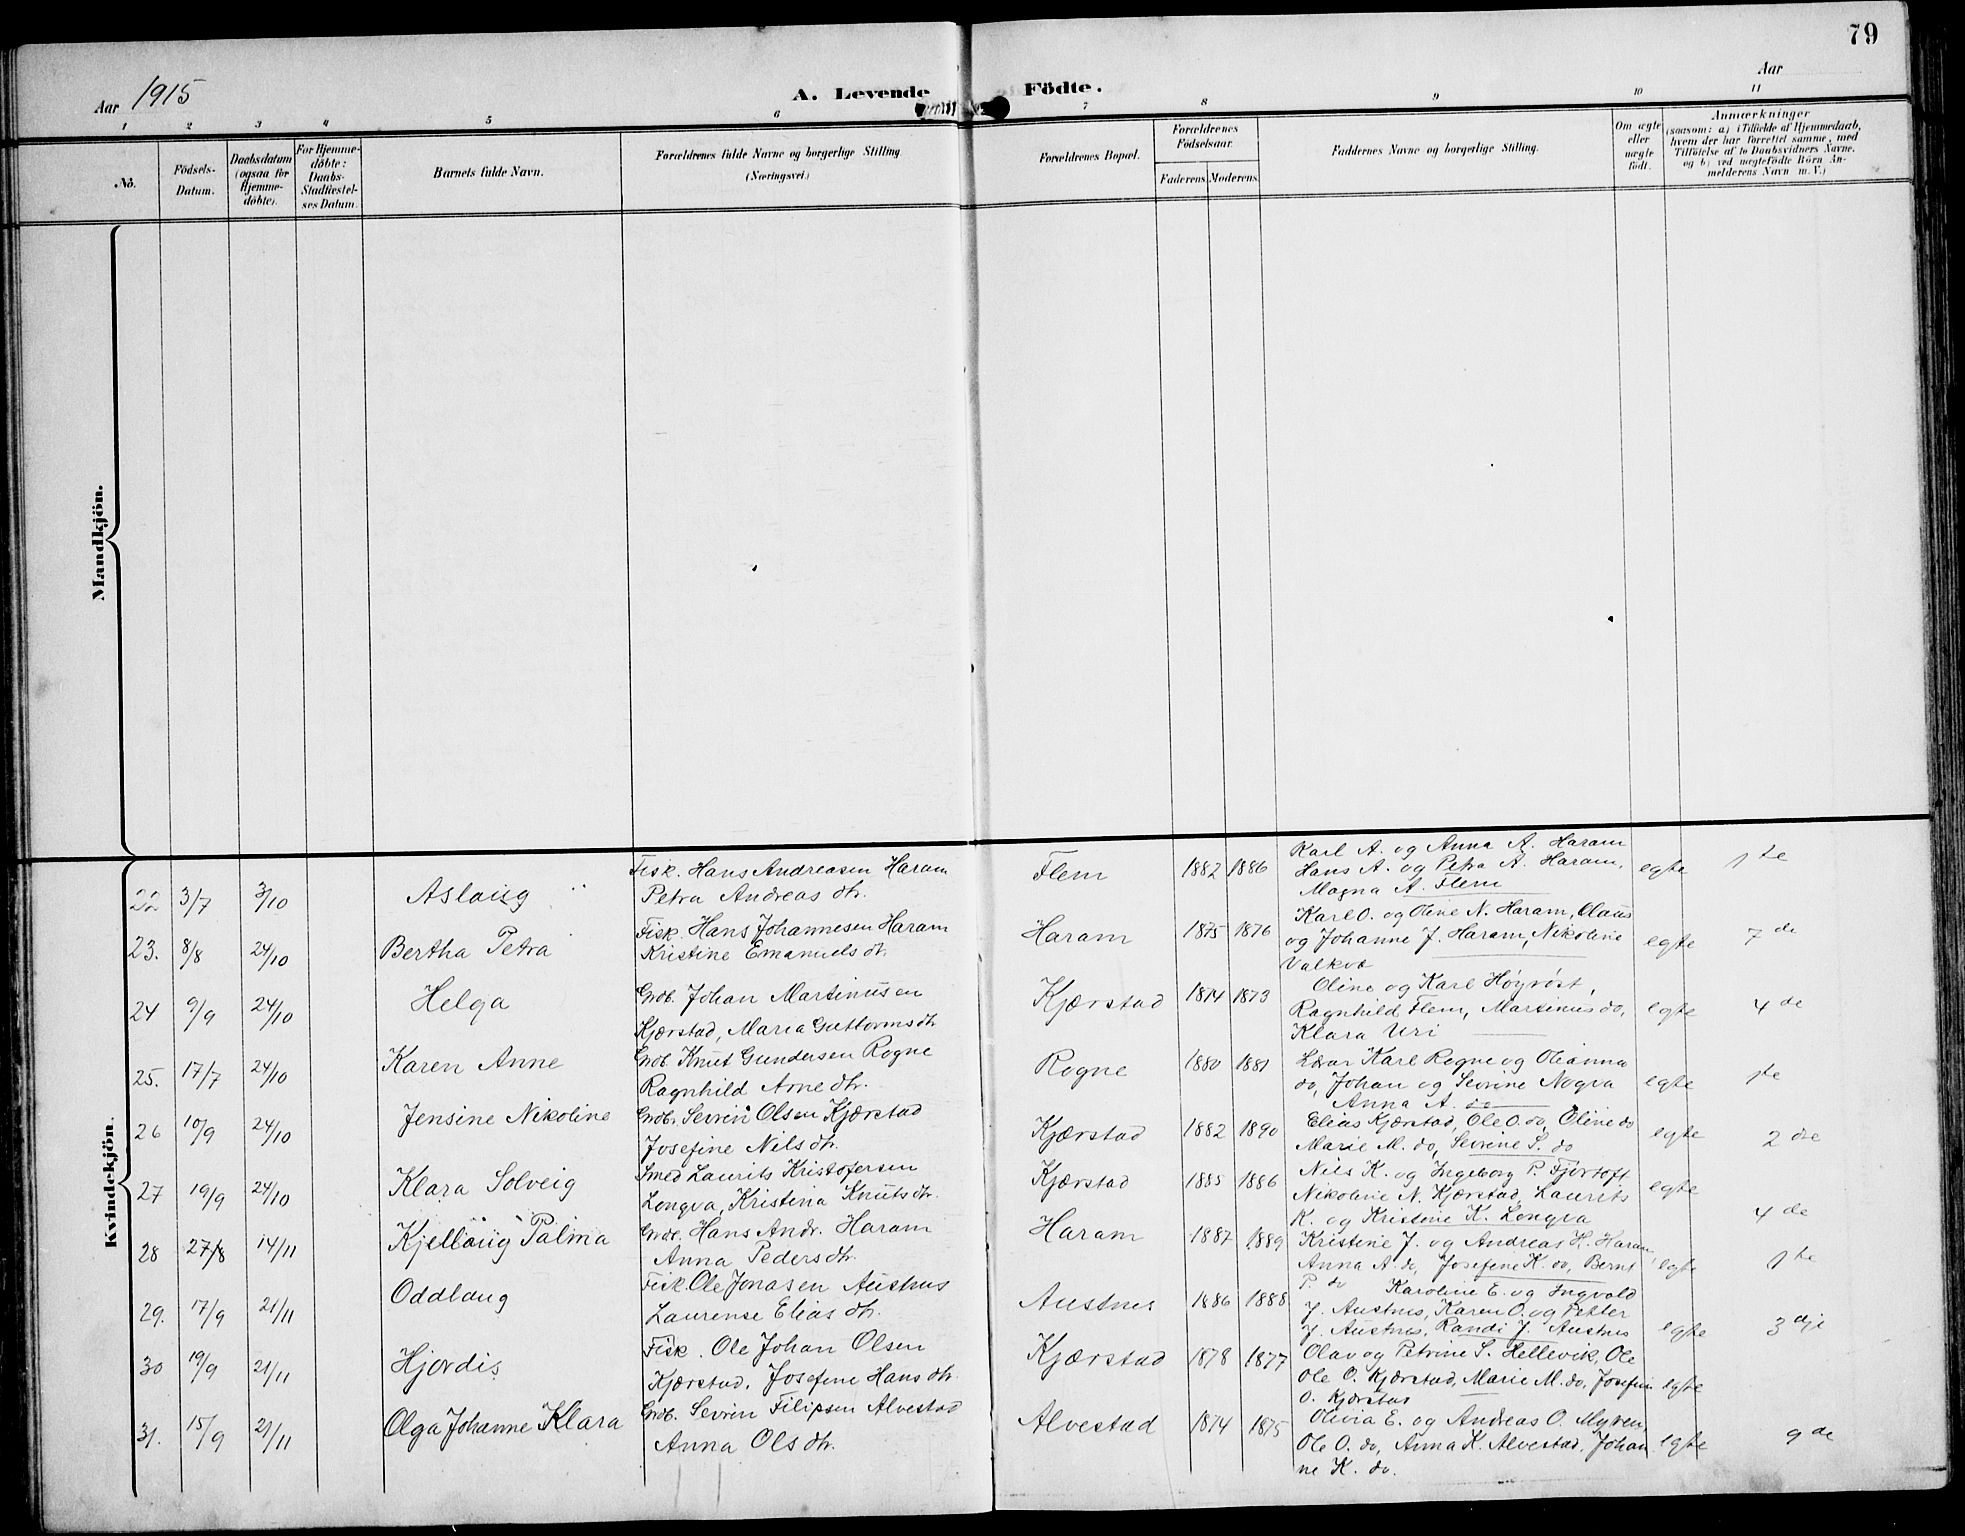 79
Aar 1915
A. Levende Födte.
Aar
1 2 3 4 5 6 7 8 9 10 11
No.
Födsels-Datum.
Daabsdatum (ogsaa for Hjemme-döbte).
For Hjemme-döbte: Daabs-Stadfæstel-ses Datum.
Barnets fulde Navn.
Forældrenes fulde Navne og borgerlige Stilling (Næringsvei.)
Forældrenes Bopæl.
Forældrenes Födselsaar.
Faderens. Moderens.
Faddernes Navne og borgerlige Stilling.
Om ægte eller uægte födt.
Anmærkninger
(saasom: a) i Tilfælde af Hjemmedaab, hvem der har forrettet samme, med Tilföielse af to Daabsvidners Navne, og b) ved uægtefödte Börn An-melderens Navn m. V.)
Mandkjön.
Kvindekjön.
22 3/7 3/10 Aslaug
Fisk. Hans Andreasen Haram
Petra Andreas dtr.
Flem 1882 1886
Karl A. og Anna A. Haram
Hans A. og Petra A. Haram,
Magna A. Flem
egte 1te
23. 8/8 24/10 Bertha Petra
Fisk. Hans Johannesen Haram
Kristine Emanuels dtr.
Haram 1875 1876
Karl O. og Oline N. Haram, Claus
og Johanne J. Haram, Nikoline
Valkvæ
egte 7de
24 9/9 24/10 Helga
Grdb. Johan Martinusen
Kjærstad, Maria Guttorms dtr.
Kjærstad 1874 1873
Oline og Karl Høyvöst,
Ragnhild Flem, Martinus do,
Klara Uri
egte 4de
25. 17/7 24/10 Karen Anne
Grdb. Knut Gundersen Rogne
Ragnhild Arne dtr.
Rogne 1880 1881
Lærer Karl Rogne og Oleanna
do, Johan og Sevrine Nogva
Anna A. do
egte 1te
26 10/9 24/10 Jensine Nikoline
Grdb. Sevrin Olsen Kjærstad
Josefine Nils dtr.
Kjærstad 1882 1890
Elias Kjærstad, Ole O. do, Oline do
Marie M. do, Sevrine S. do
egte 2de
27 19/9 24/10 Klara Solveig
Smed Laurits Kristofersen
Longva, Kristina Knuts dtr.
Kjærstad 1885 1886
Nils K. og Ingeborg P. Fjörtoft
Nikoline N. Kjærstad, Laurits
K. og Kristine K. Longva
egte 4de
28 27/8 14/11 Kjellaug Palma
Grdb. Hans Andr. Haram
Anna Peders dtr.
Haram 1887 1889
Kristine J. og Andreas H. Haram
Anna A. do, Josefine K. do, Bernt
P. do
egte 1te
29. 17/9 21/11 Oddlaug
Fisk. Ole Jonasen Austnes
Laurense Elias dtr.
Austnes 1886 1888
Karoline E. og Ingvald
J. Austnes, Karen O. og Petter
J. Austnes, Randi J. Austnes
egte 3dje
30 19/9 21/11 Hjordis
Fisk. Ole Johan Olsen
Kjærstad, Josefine Hans dtr.
Kjærstad 1878 1877
Olav og Petrine S. Hellevik, Ole
Ole O. Kjærstad, Marie M. do, Josefine
O. Kjærstad
egte
31. 15/9 21/11 Olga Johanne Klara
Grdb. Sevrin Filipsen Alvestad
Anna Ols dtr.
Alvestad 1874 1875
Olivia E. og Andreas O. Myren,
Ole O. do, Anna K. Alvestad, Johan
ne K. do.
egte 9de